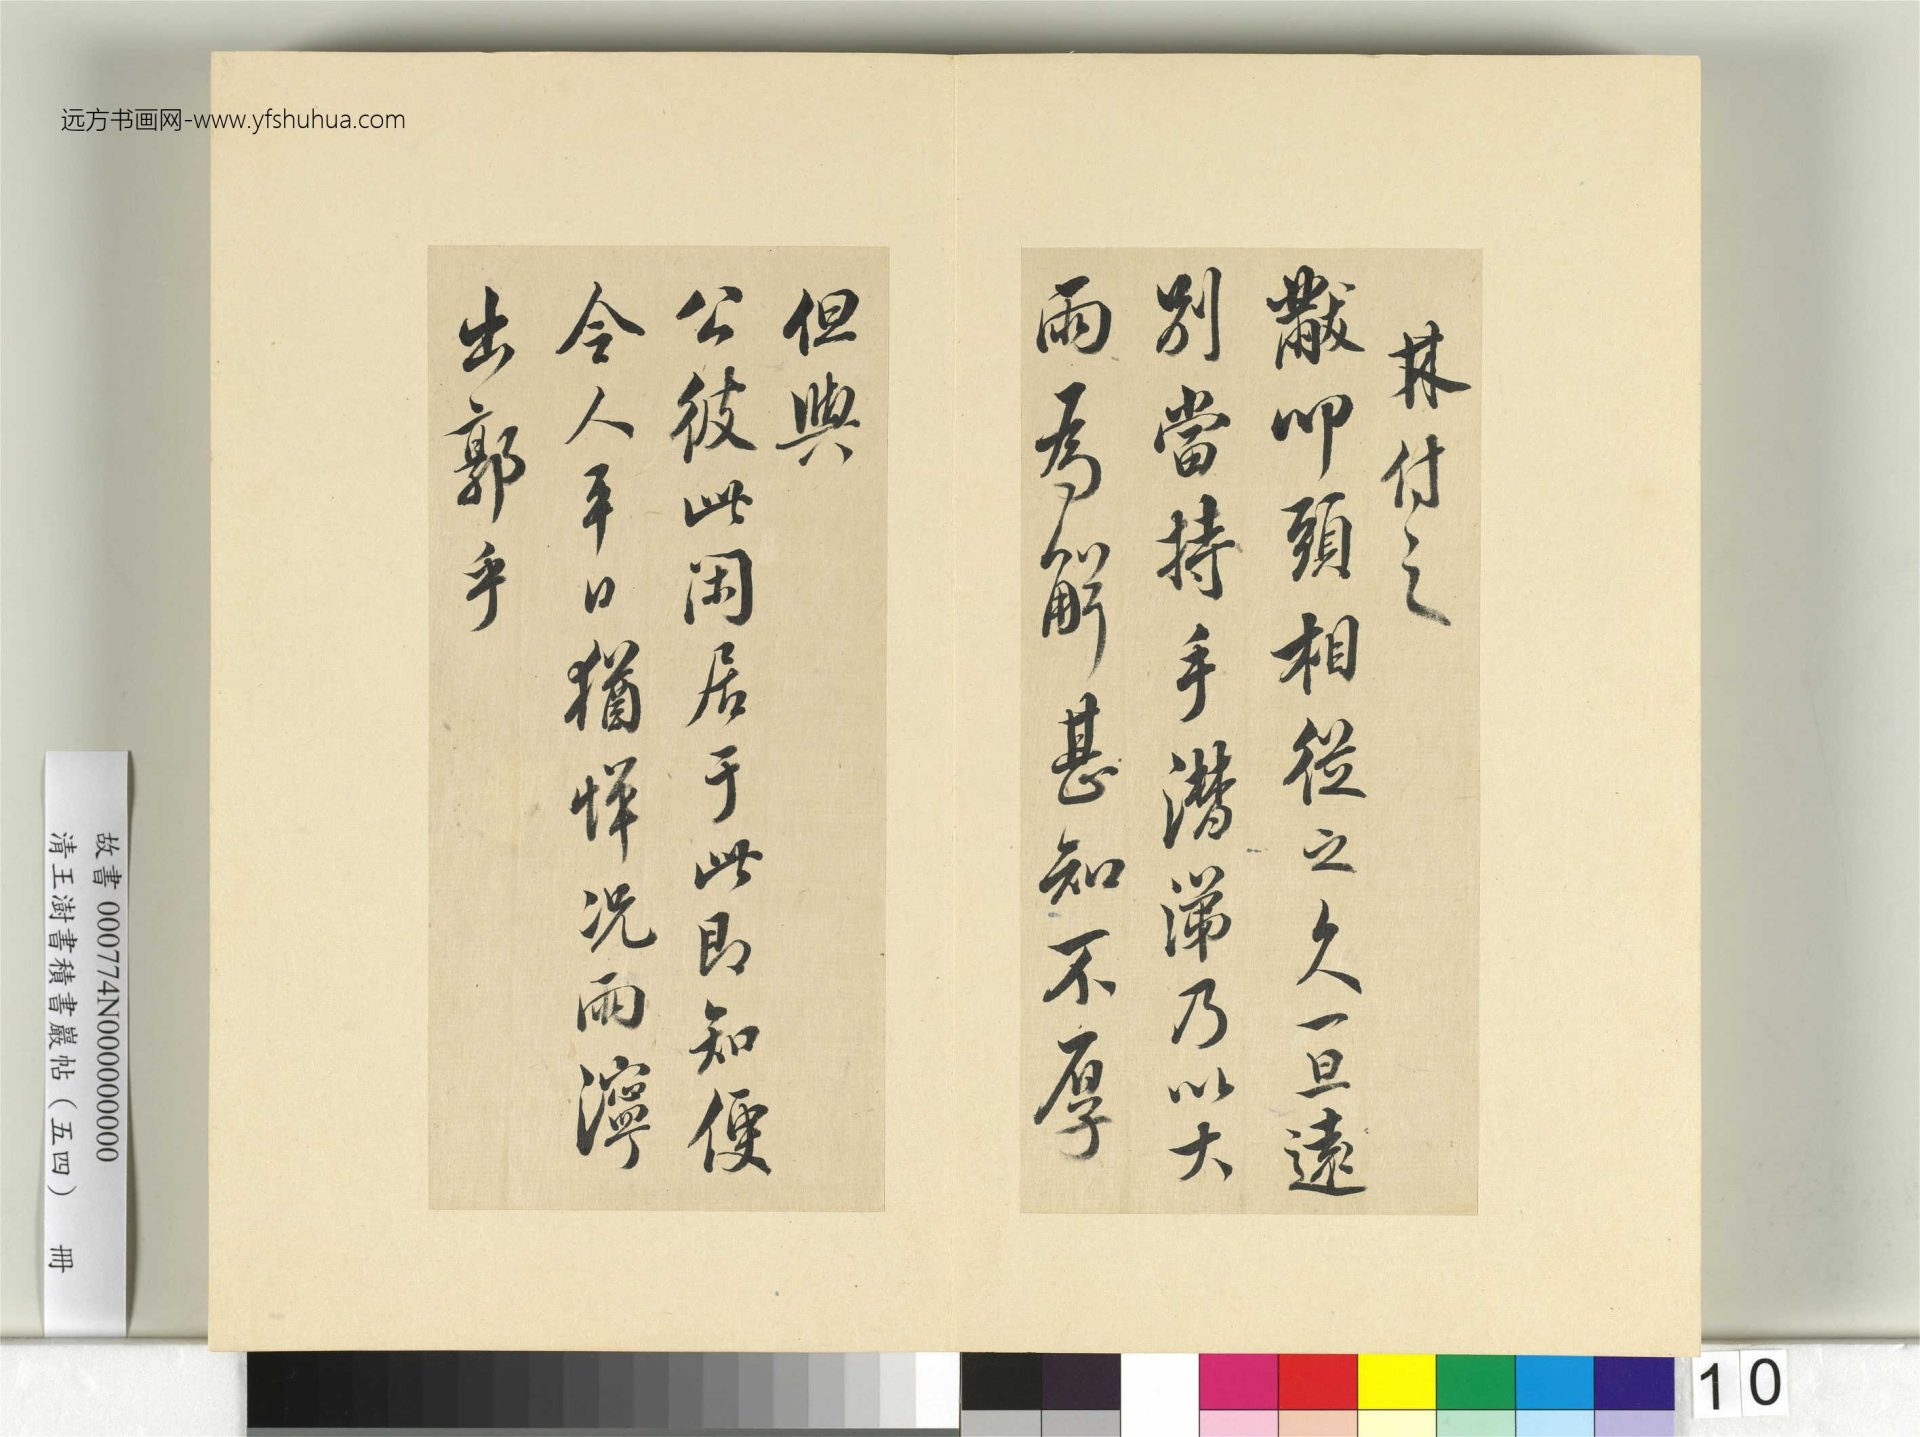 远方书画网-www.yfshuhua.com
林付之
黻叩頭相從之久一旦遠
別當持手潸涕乃以大
雨為解甚知不厚
但與
公彼此閑居于此即知使
令人平日猶惮况雨濘
出郭乎
故書 000774N000000000
清王澍書積書巖帖（五四） 冊
10